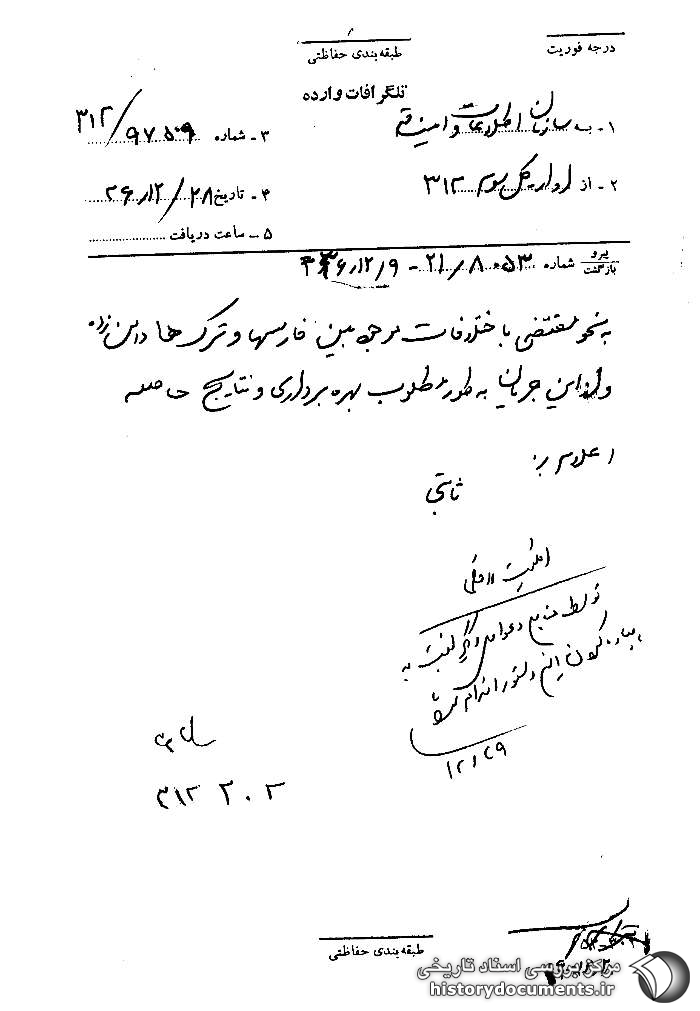 درجه فوریت
طبقه‌بندی حفاظتی
تلگرافات وارده
۱ - به سازمان اطلاعات و امنیت قم
۳ - شماره ۳۱۲/۹۷۵۰۹
۲ - از اداره کل سوم ۳۱۲
۴ - تاریخ ۲۶/۱۲/۲۸
۵ - ساعت دریافت
پیرو
بازگشت
شماره ۲۱/۸۰۵۳ - ۳۶/۱۲/۹
به نحو مقتضی با اختلافات موجود بین فارسها و ترک‌ها دامن زده
و از این جریان به طور مطلوب بهره برداری و نتایج حاصله
اعلام
ثابتی
امنیت داخلی
توسط منابع و عوامل دیگر نسبت به
پیاده کردن این دستور اقدام
۱۲/۲۹
۳۱۲ ۲۰۲
طبقه‌بندی حفاظتی
مرکز بررسی اسناد تاریخی
historydocuments.ir